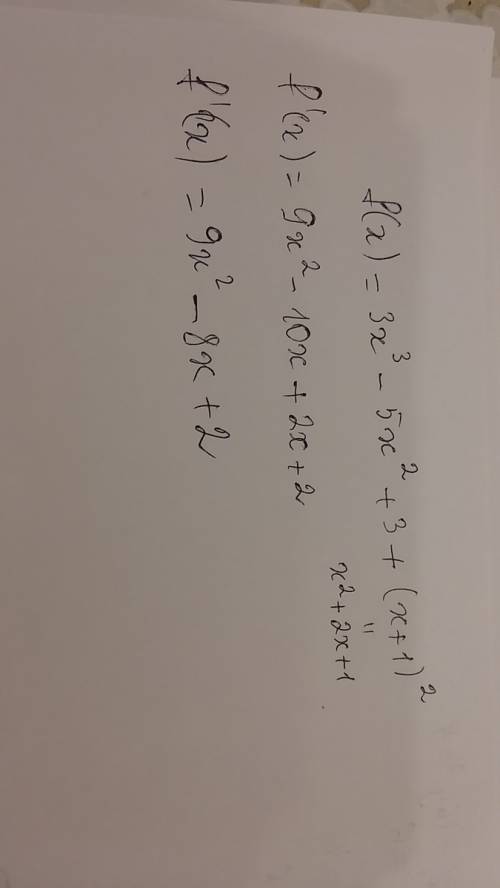 f(x) = 3x³ - 5x² + 3 + (x+1)²
"
x²+2x+1
f'(x) = 9x² - 10x + 2x + 2
f'(x) = 9x² - 8x + 2